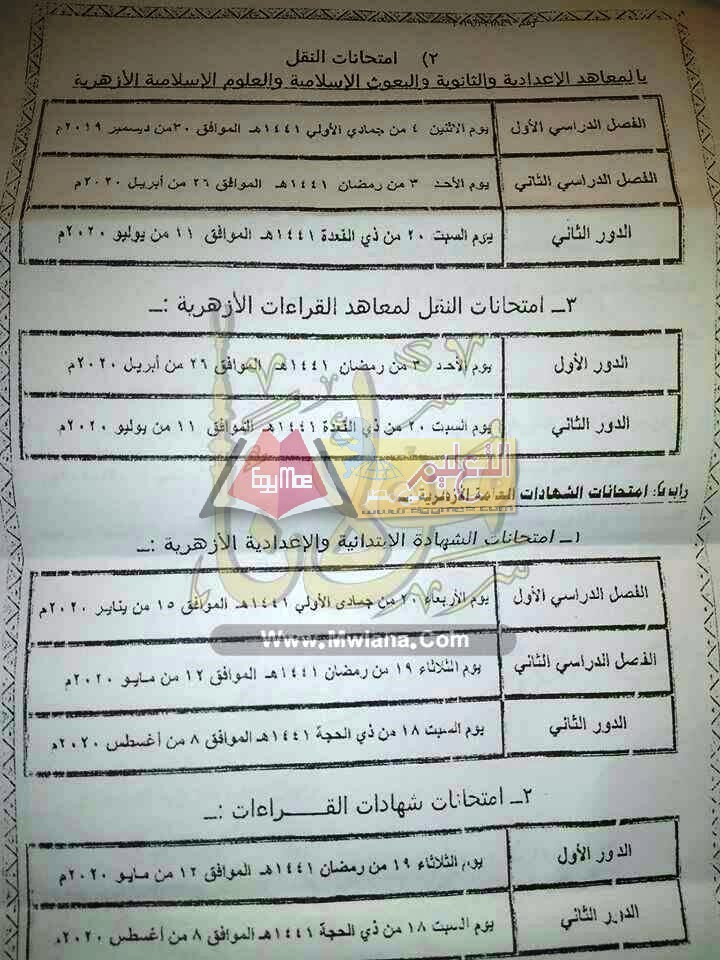 ٢) امتحانات النقل
بالمعاهد الإعدادية والثانوية والبعوث الإسلامية والعلوم الإسلامية الأزهرية
الفصل الدراسي الأول يوم الاثنين ٤ من جمادي الأولي ١٤٤١هـ الموافق ٣٠من ديسمبر ٢٠١٩م
الفصل الدراسي الثاني يوم الأحد ٣ من رمضان ١٤٤١هـ الموافق ٢٦ من أبريل ٢٠٢٠م
الدور الثاني يوم السبت ٢٠ من ذي القعدة ١٤٤١هـ الموافق ١١ من يوليو ٢٠٢٠م
٣ــ امتحانات النقل لمعاهد القراءات الأزهرية :ــ
الدور الأول يوم الأحد ٣ من رمضان ١٤٤١هـ الموافق ٢٦ من أبريل ٢٠٢٠م
الدور الثاني يوم السبت ٢٠ من ذي القعدة ١٤٤١هـ الموافق ١١ من يوليو ٢٠٢٠م
التعليم
رابعاً: امتحانات الشهادات العامة الأزهرية :ــ
١ــ امتحانات الشهادة الابتدائية والإعدادية الأزهرية :ــ
الفصل الدراسي الأول يوم الأربعاء ٢٠ من جمادى الأولي ١٤٤١هـ الموافق ١٥ من يناير ٢٠٢٠م
Www.Mwlana.Com
الفصل الدراسي الثاني يوم الثلاثاء ١٩ من رمضان ١٤٤١هـ الموافق ١٢ من مايو ٢٠٢٠م
الدور الثاني يوم السبت ١٨ من ذي الحجة ١٤٤١هـ الموافق ٨ من أغسطس ٢٠٢٠م
٢ــ امتحانات شهادات القـــراءات :ــ
الدور الأول يوم الثلاثاء ١٩ من رمضان ١٤٤١هـ الموافق ١٢ من مايو ٢٠٢٠م
الدور الثاني يوم السبت ١٨ من ذي الحجة ١٤٤١هـ الموافق ٨ من أغسطس ٢٠٢٠م